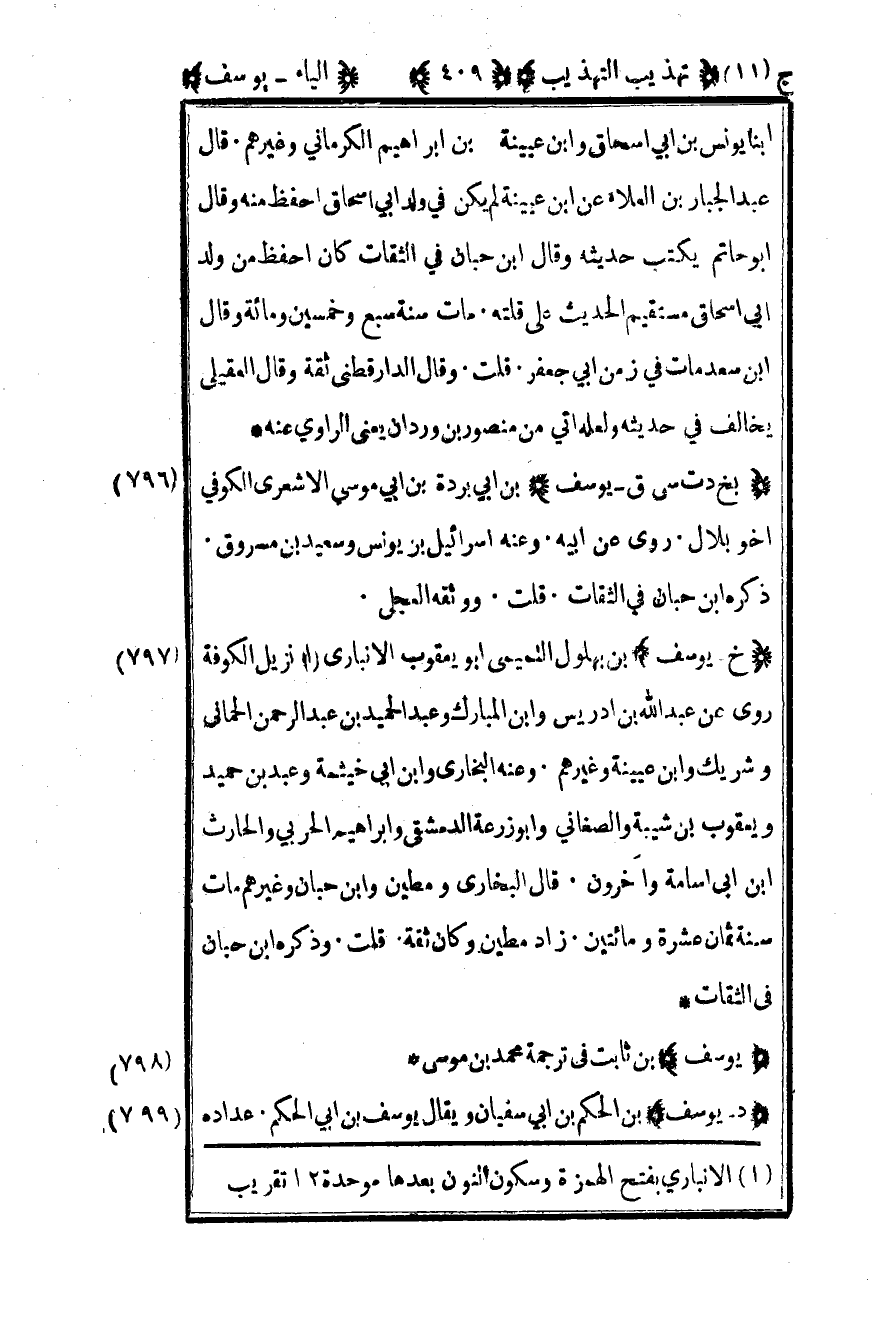 ج (١١) ﴿ تهذيب التهذيب ﴾ ﴿ ٤٠٩ ﴾ ﴿ الياء - يوسف ﴾
ابنا يونس بن ابي اسحاق وابن عيينة بن ابراهيم الكرماني وغيرهم · قال
عبد الجبار بن العلاء عن ابن عيينة لم يكن في ولد ابي اسحاق احفظ منه وقال
ابو حاتم يكتب حديثه وقال ابن حبان في الثقات كان احفظ من ولد
ابي اسحاق مستقيم الحديث على قلته · مات سنة سبع وخمسين ومائة وقال
ابن سعد مات في زمن ابي جعفر · قلت · وقال الدارقطنى ثقة وقال العقيلى
يخالف في حديثه ولعله اتي من منصور بن وردان يعنى الراوي عنه *
﴿ بخ د ت سى ق - يوسف ﴾ بن ابي بردة بن ابي موسي الاشعرى الكوفي (٧٩٦)
اخو بلال · روى عن ابيه · وعنه اسرائيل بن يونس وسعيد بن مسروق ·
ذكره ابن حبان في الثقات · قلت · ووثقه العجلى ·
﴿ خ - يوسف ﴾ بن بهلول التميمى ابو يعقوب الانبارى (١) نزيل الكوفة (٧٩٧)
روى عن عبد الله بن ادريس وابن المبارك وعبد الحميد بن عبد الرحمن الحمانى
وشريك وابن عيينة وغيرهم · وعنه البخارى وابن ابي خيثمة وعبد بن حميد
ويعقوب بن شيبة والصغاني وابو زرعة الدمشقى وابراهيم الحربي والحارث
ابن ابى اسامة وآخرون · قال البخارى ومطين وابن حبان وغيرهم مات
سنة ثمان عشرة ومائتين · زاد مطين وكان ثقة · قلت · وذكره ابن حبان
فى الثقات *
﴿ يوسف ﴾ بن ثابت فى ترجمة محمد بن موسى * (٧٩٨)
﴿ د - يوسف ﴾ بن الحكم بن ابي سفيان ويقال يوسف بن ابي الحكم · عداده (٧٩٩)
(١) الانباري بفتح الهمزة وسكون النون بعدها موحدة ١٢ تقريب